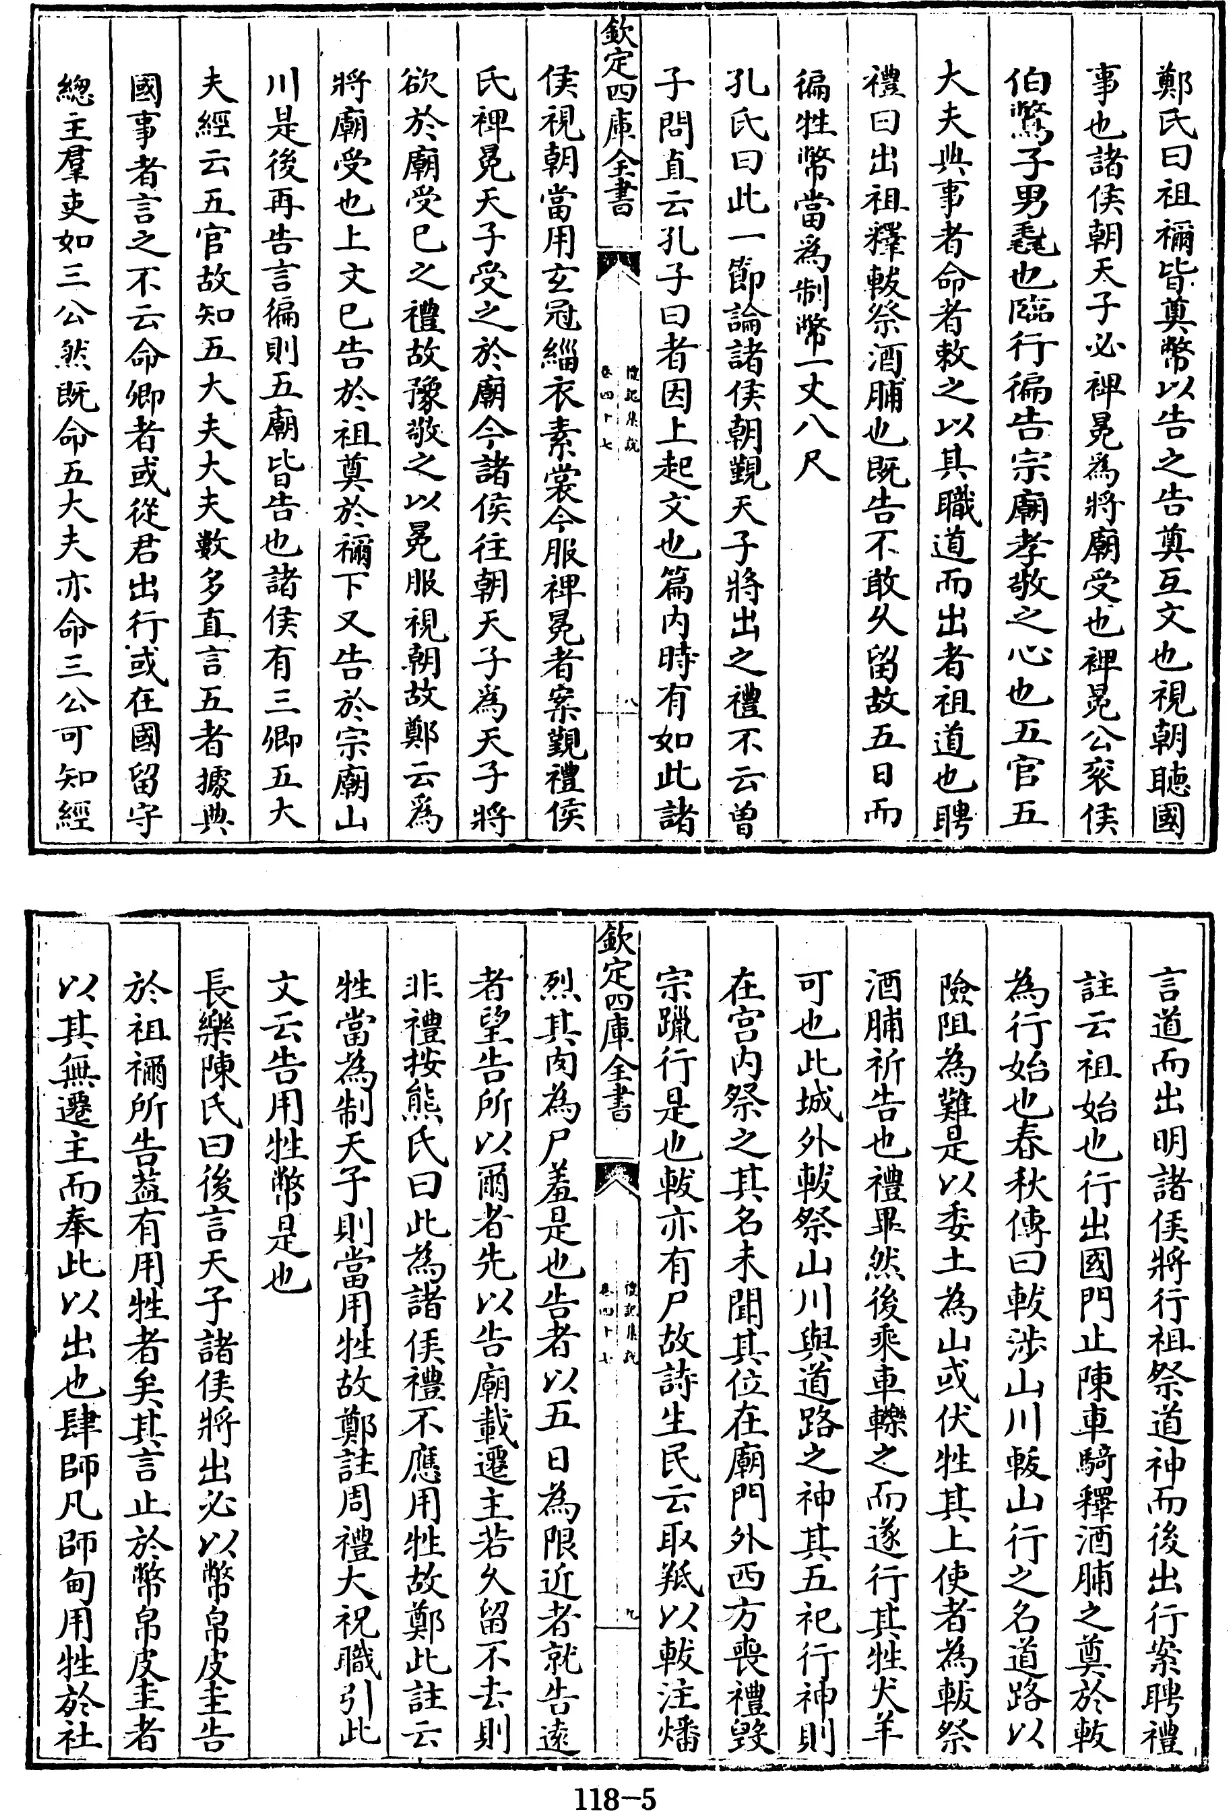 鄭氏曰祖禰皆奠幣以告之告奠互文也視朝聽國
事也諸侯朝天子必裨冕爲將廟受也裨冕公衮侯
伯驚子男毳也臨行徧告宗廟孝敬之心也五官五
大夫典事者命者敕之以其職道而出者祖道也聘
禮曰出祖釋軷祭酒脯也既告不敢久留故五日而
徧牲幣當爲制幣一丈八尺
孔氏曰此一節論諸侯朝覲天子將出之禮不云曾
子問直云孔子曰者因上起文也篇内時有如此諸
欽定四庫全書
禮記集說
卷四十七
八
侯視朝當用玄冠緇衣素裳今服裨冕者案覲禮侯
氏裨冕天子受之於廟今諸侯往朝天子爲天子將
欲於廟受已之禮故豫敬之以冕服視朝故鄭云爲
將廟受也上文已告於祖奠於禰下又告於宗廟山
川是後再告言徧則五廟皆告也諸侯有三卿五大
夫經云五官故知五大夫大夫數多直言五者據典
國事者言之不云命卿者或從君出行或在國留守
總主羣吏如三公然既命五大夫亦命三公可知經
言道而出明諸侯將行祖祭道神而後出行案聘禮
註云祖始也行出國門止陳車騎釋酒脯之奠於軷
為行始也春秋傳曰軷涉山川軷山行之名道路以
險阻為難是以委土為山或伏牲其上使者為軷祭
酒脯祈告也禮畢然後乘車轢之而遂行其牲犬羊
可也此城外軷祭山川與道路之神其五祀行神則
在宫内祭之其名未聞其位在廟門外西方喪禮毀
宗躐行是也軷亦有尸故詩生民云取羝以軷注燔
欽定四庫全書
禮記集說
卷四十七
九
烈其肉為尸羞是也告者以五日為限近者就告遠
者望告所以爾者先以告廟載遷主若久留不去則
非禮按熊氏曰此為諸侯禮不應用牲故鄭此註云
牲當為制天子則當用牲故鄭註周禮大祝職引此
文云告用牲幣是也
長樂陳氏曰後言天子諸侯將出必以幣帛皮圭告
於祖禰所告葢有用牲者矣其言止於幣帛皮圭者
以其無遷主而奉此以出也肆師凡師甸用牲於社
118-5